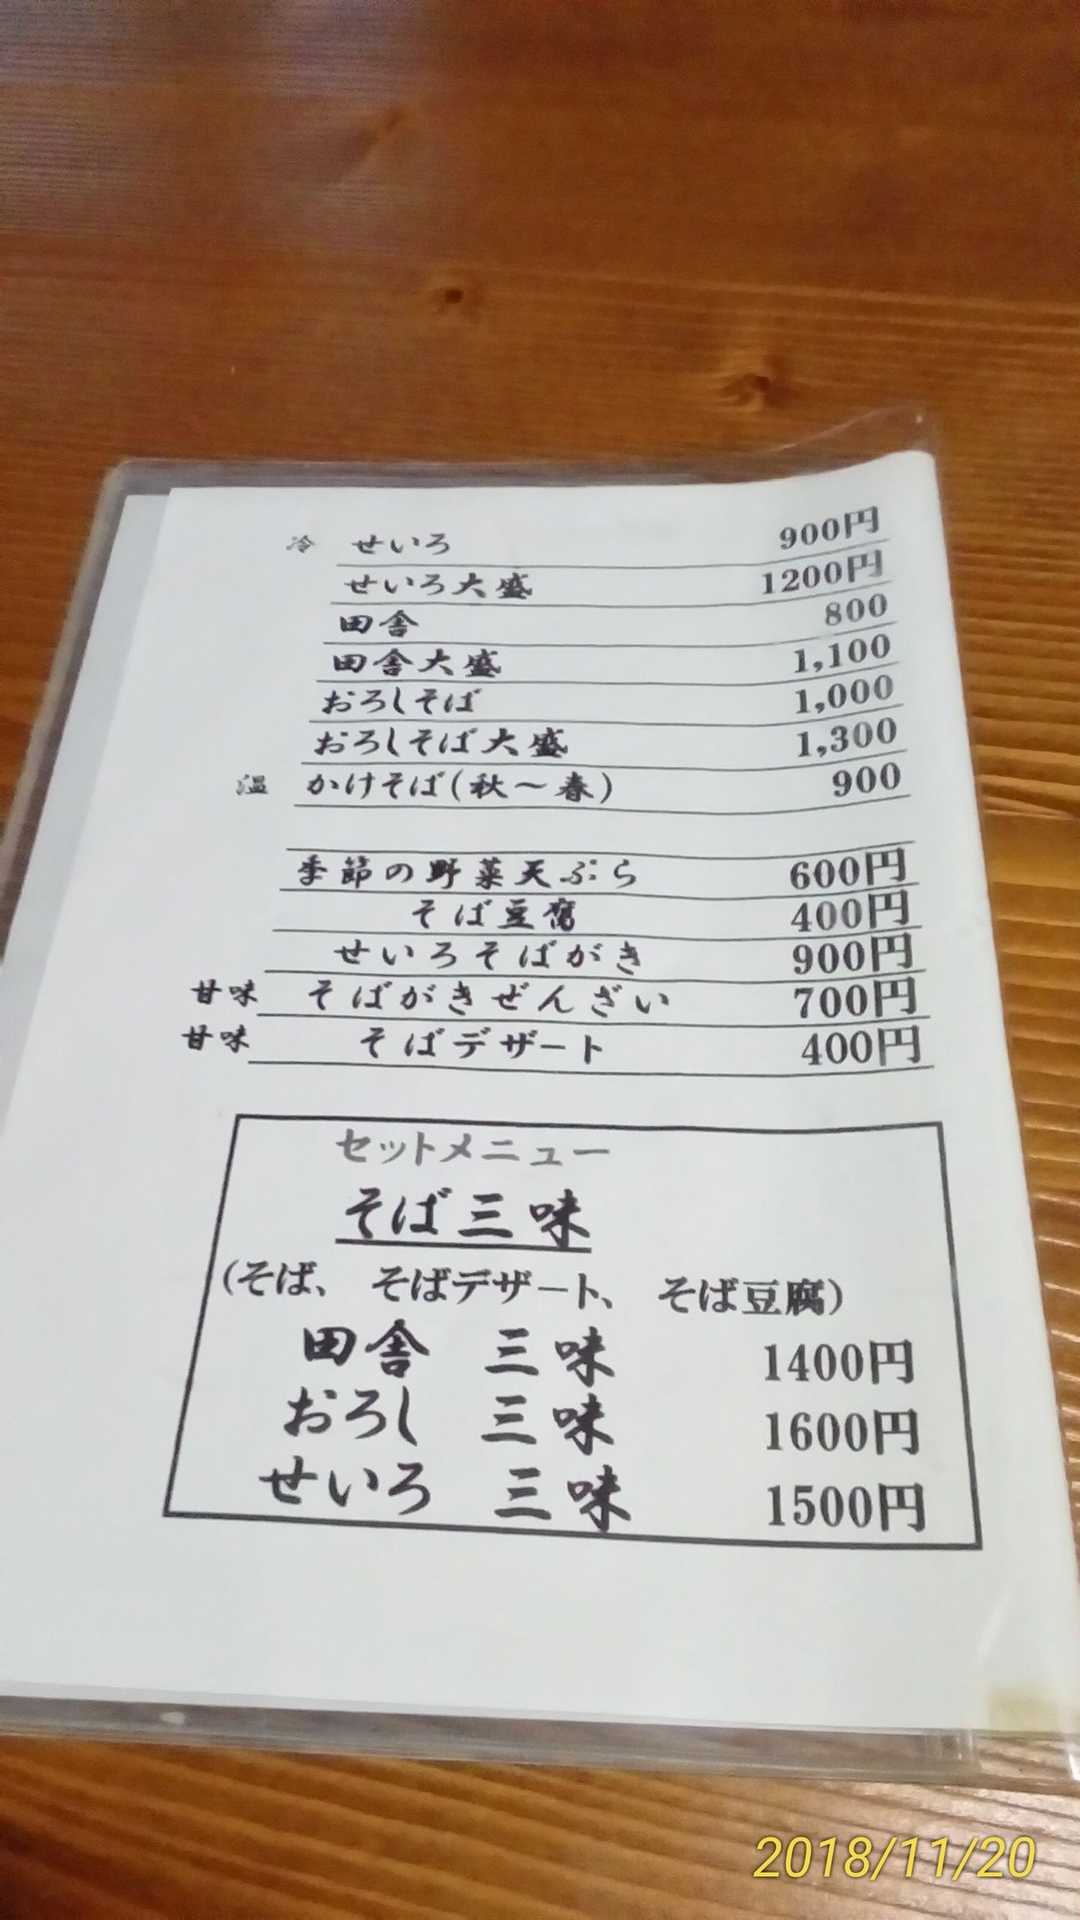 冷 せいろ 900円
せいろ大盛 1200円
田舎 800
田舎大盛 1,100
おろしそば 1,000
おろしそば大盛 1,300
温 かけそば(秋～春) 900
季節の野菜天ぷら 600円
そば豆腐 400円
せいろそばがき 900円
甘味 そばがきぜんざい 700円
甘味 そばデザート 400円
セットメニュー
そば三味
(そば、 そばデザート、 そば豆腐)
田舎 三味 1400円
おろし 三味 1600円
せいろ 三味 1500円
2018/11/20